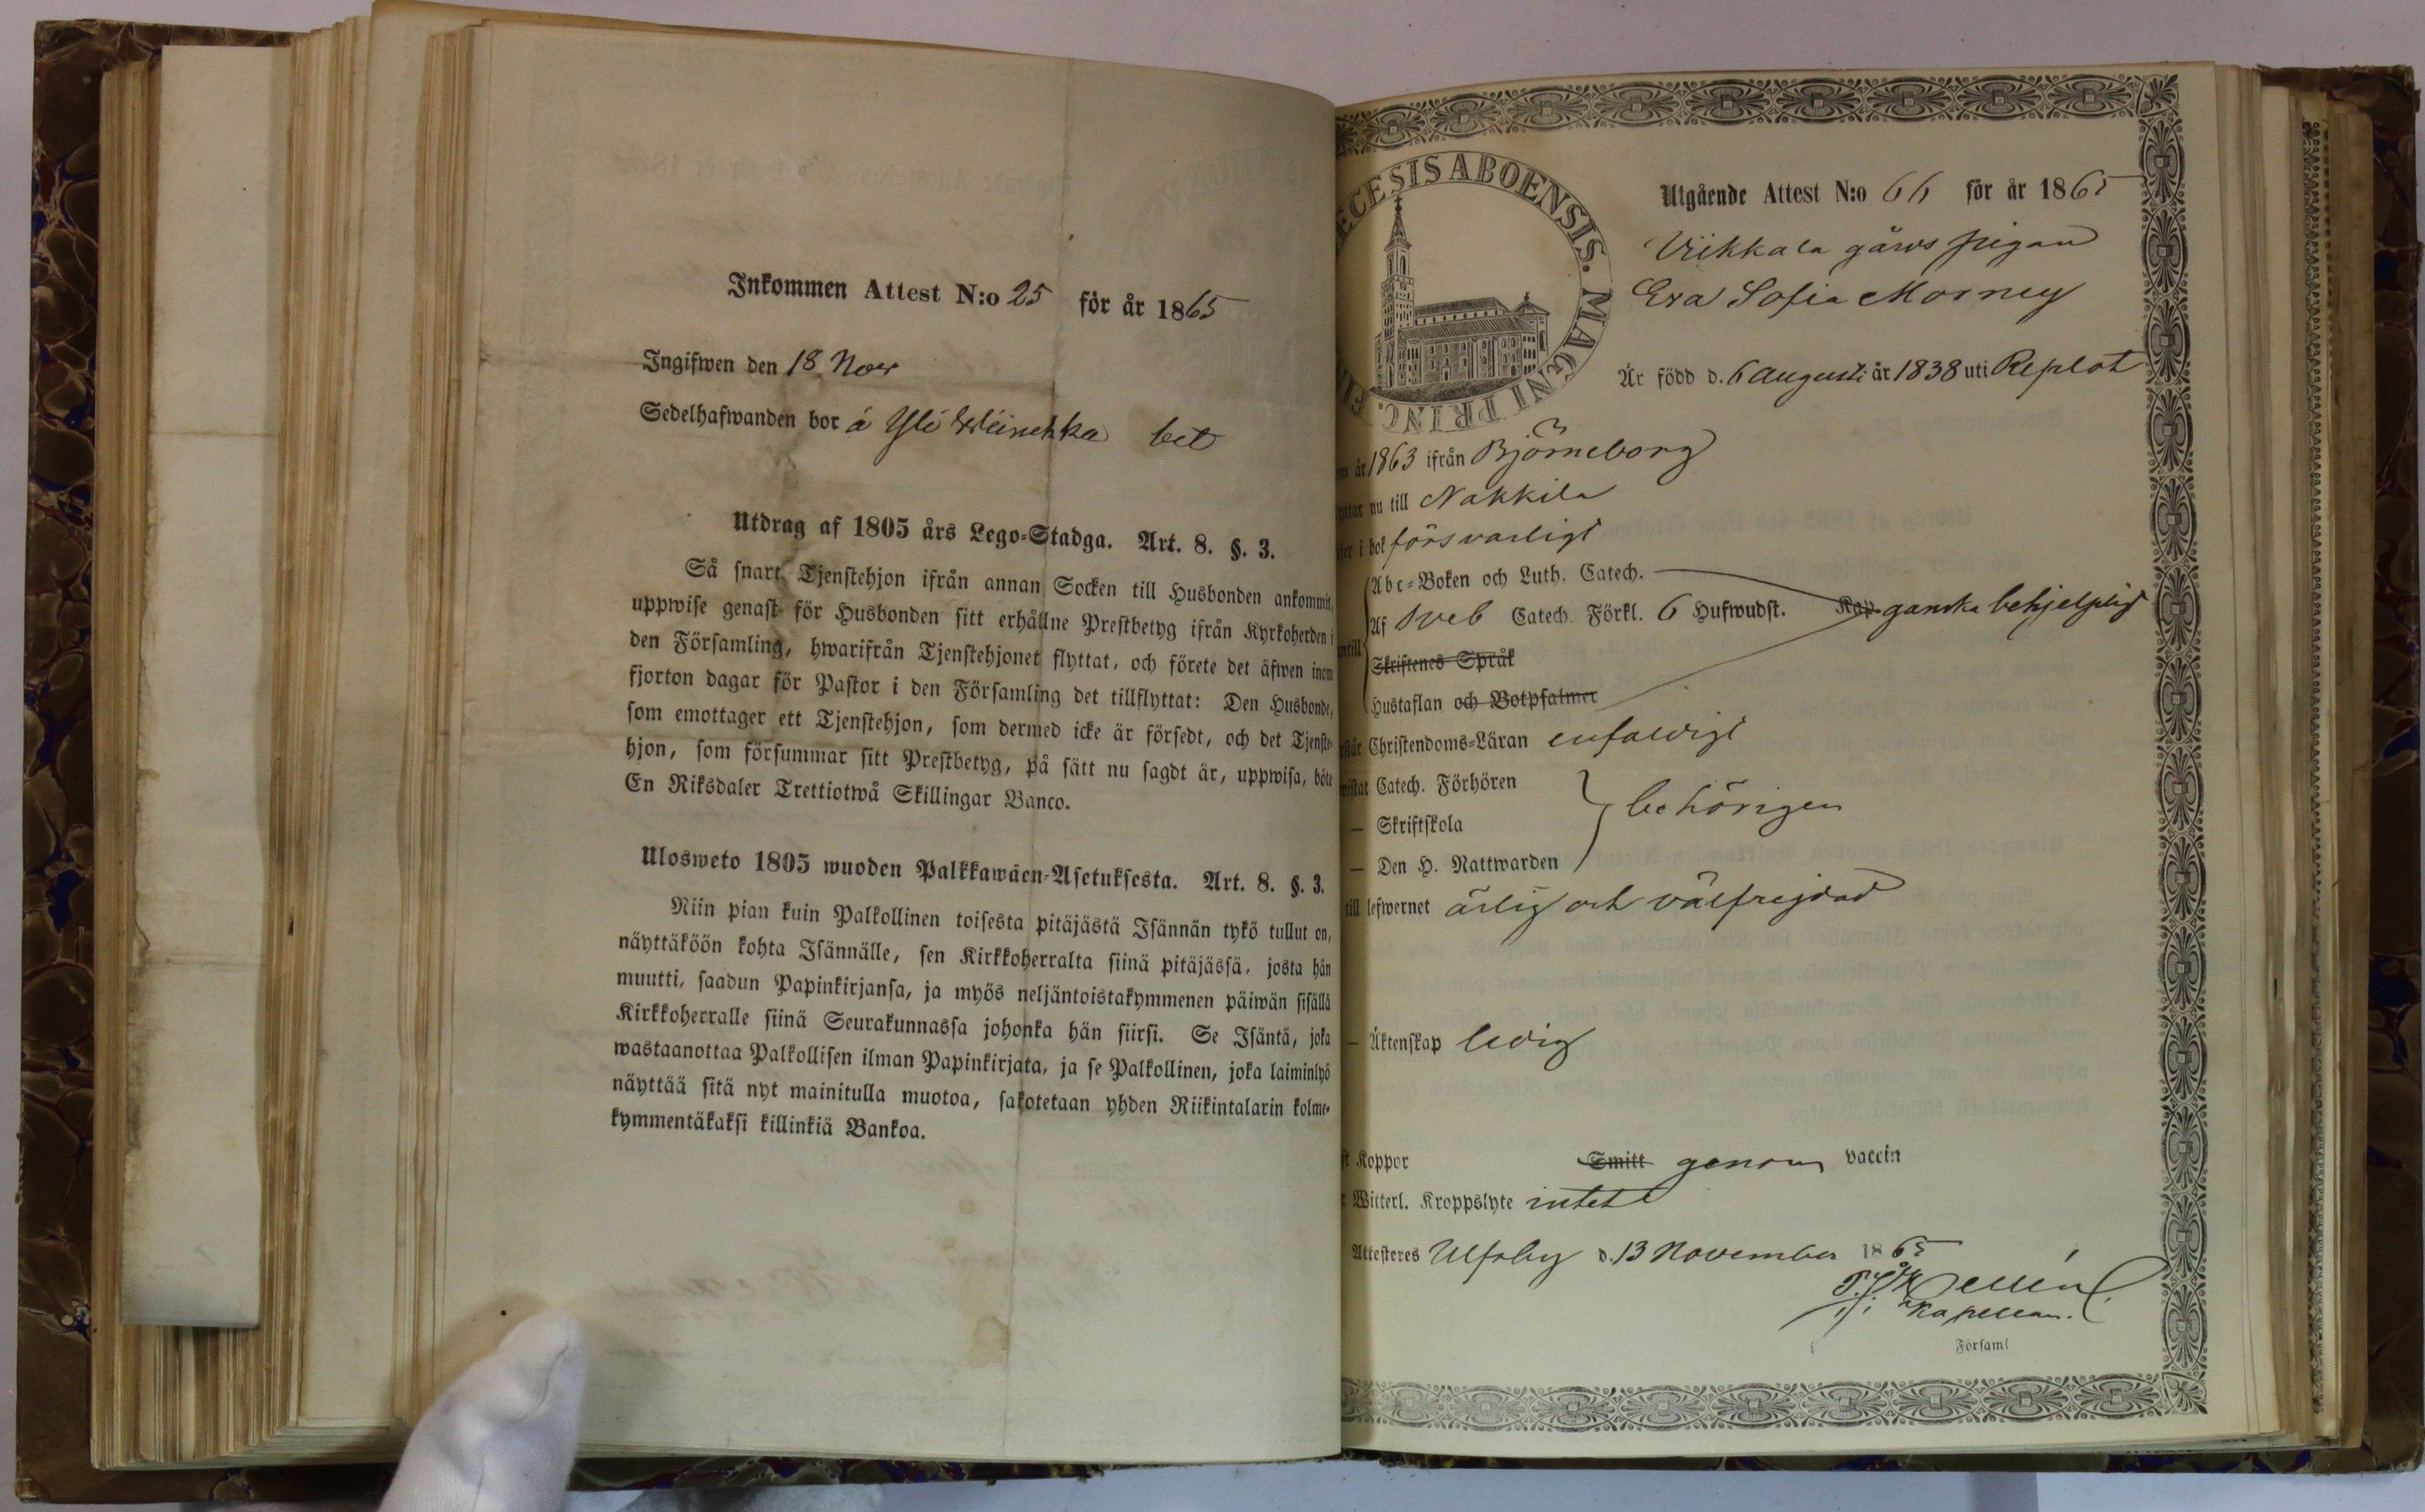 Inkommen Attest N:o 25 för år 1865
Ingifwen den 18 Nov
Sedelhafwanden bor á Yli bet
Utdrag af 1805 års Lego-Stadga. Art. 8. §. 3.
Så snart Tjenstehjon ifrån annan Socken till Husbonden ankommit,
uppwise genast för Husbonden sitt erhållne Prestbetyg ifrån Kyrkoherden i
den Församling, hwarifrån Tjenstehjonet flyttat, och förete det äfwen inom
fjorton dagar för Pastor i den Församling det tillflyttat: Den Husbonde,
som emottager ett Tjenstehjon, som dermed icke är försedt, och det Tjenste-
hjon, som försummar sitt Prestbetyg, på sätt nu sagdt är, uppwisa, böte
En Riksdaler Trettiotwå Skillingar Banco.
Ulosweto 1805 wuoden Palkkawäen-Asetuksesta. Art. 8. §. 3.
Niin pian kuin Palkollinen toisesta pitäjästä Isännän tykö tullut on,
näyttäköön kohta Isännälle, sen Kirkkoherralta siinä pitäjässä, josta hän
muutti, saadun Papinkirjansa, ja myös neljäntoistakymmenen päiwän sisällä
Kirkkoherralle siinä Seurakunnassa johonka hän siirsi. Se Isäntä, joka
wastaanottaa Palkollisen ilman Papinkirjata, ja se Palkollinen, joka laiminlyö
näyttää sitä nyt mainitulla muotoa, sakotetaan yhden Riikintalarin kolme-
kymmentäkaksi killinkiä Bankoa.
ECESIS ABOENSIS. MAGNI PRINC.
Utgående Attest N:o 66 för år 1865
Viikkala gårds pigan
Eva Sofia Morney
Är född d. 6 Augusti år 1838 uti Replot
år 1863 ifrån Björneborg
nu till Nakkila
i bok försvarligt
Abc-Boken och Luth. Catech.
Af Sveb Catech. Förkl. 6 Hufwudst. Kap. ganska behjelpligt
Skriftenes Språk
Hustaflan och Botpsalmer
Christendoms-Läran enfaldigt
Catech. Förhören
— Skriftskola behörigen
— Den H. Nattwarden
till lefwernet ärlig och välfrejdad
— Äktenskap ledig
Koppor Smitt genom vaccin
Witterl. Kroppslyte intet
Attesteres Ulfsby d. 13 November 1865
Kapellan.
Församl